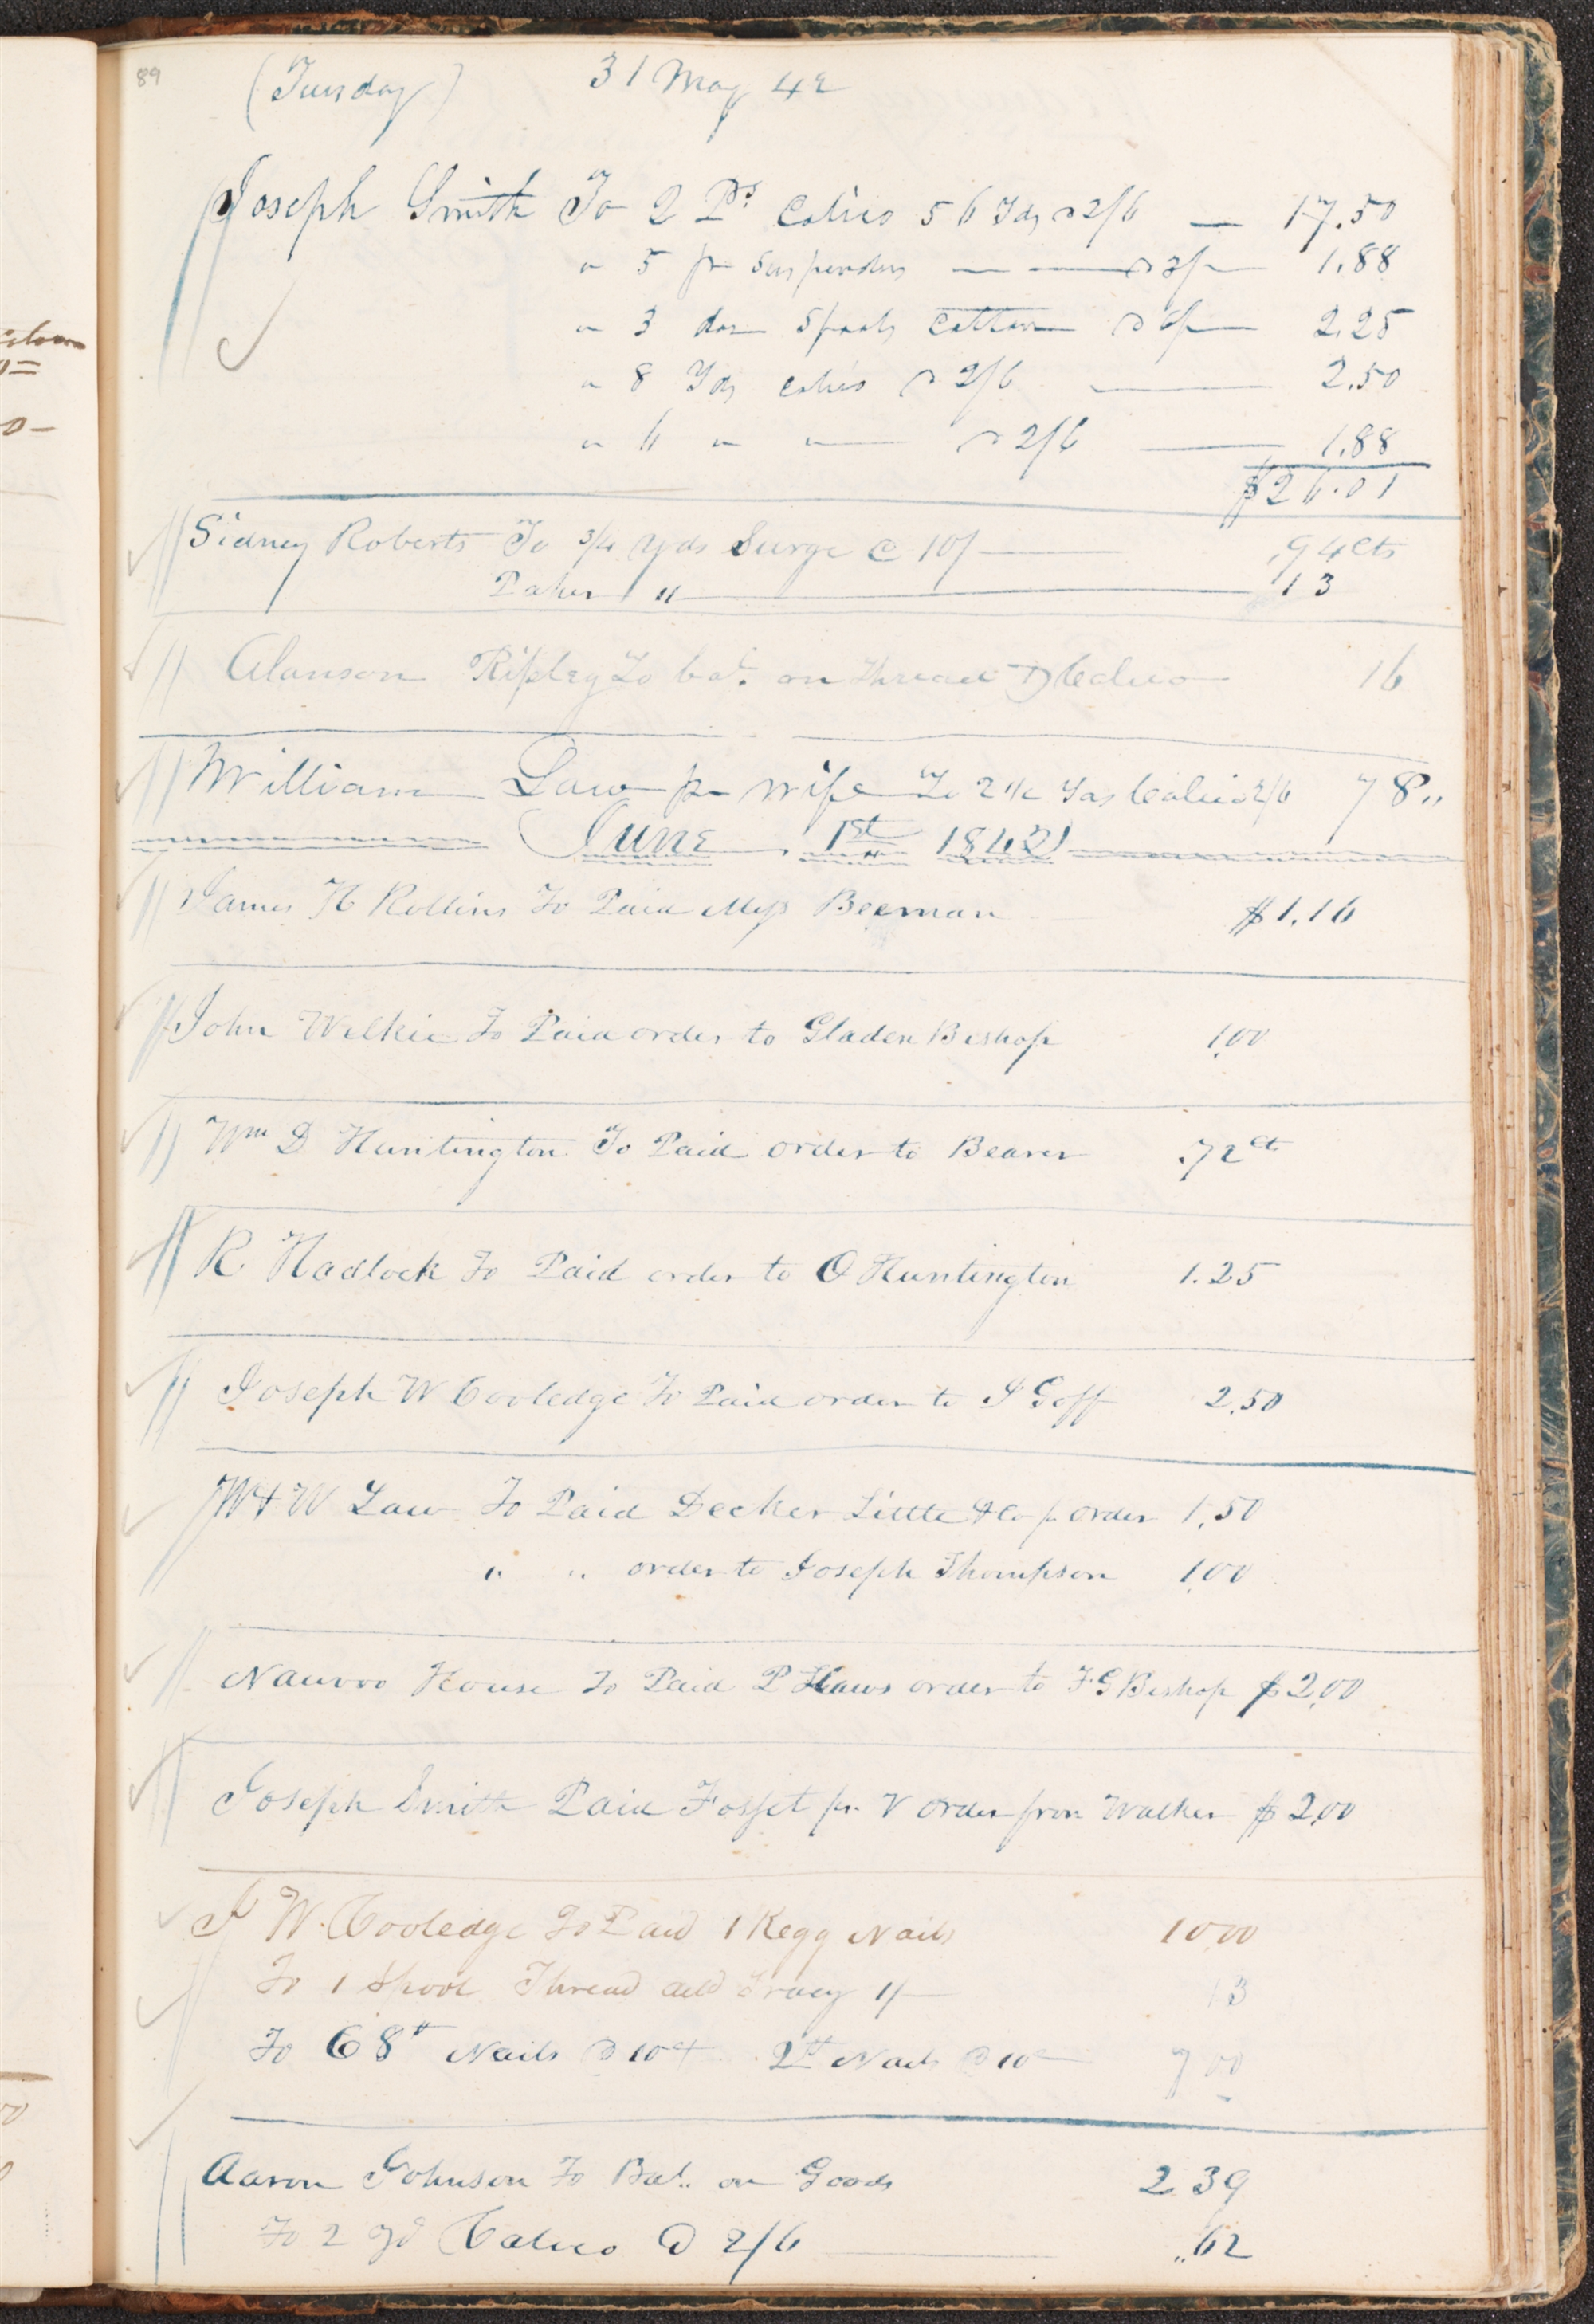 89
(Tuesday) 31 May 42
Joseph Smith To 2 Ps Calico 56 Yds @ 2/6 — 17.50
" 5 pr Suspenders — — @ 3/– 1.88
" 3 doz Spools Cotton @ 6/– 2.25
" 8 Yds Calico @ 2/6 — 2.50
" 6 " " — @ 2/6 — 1.88
$26.01
Sidney Roberts To 3/4 Yds Surge @ 10/ — .94cts
" — 13
Alanson Ripley To bal. on Thread & Calico — 16
William Law pr Wife To 2 1/2 Yds Calico 2/6 78"
June 1st 1842
James H Rollins To Paid Miss Beeman $1.16
John Wilkie To Paid order to Gladen Bishop 1.00
Wm D Huntington To Paid order to Bearer .72cts
R Hadlock To Paid order to O Huntington 1.25
Joseph W Cooledge To Paid order to J Goff 2.50
W & W Law To Paid Decker Little & Co pr order 1.50
" " order to Joseph Thompson 1.00
Nauvoo House To Paid P Haws order to F G Bishop $2.00
Joseph Smith Paid Fosset pr V order from Walker $2.00
J W. Cooledge To Paid 1 Kegg Nails 10.00
To 1 Spool Thread deld Tracy 1/– 13
To 68 lb Nails @ 10ct 2 lb Nails @ 10c 7 00
Aaron Johnson To Bal. on Goods 2 39
To 2 Yd Calico @ 2/6 — "62